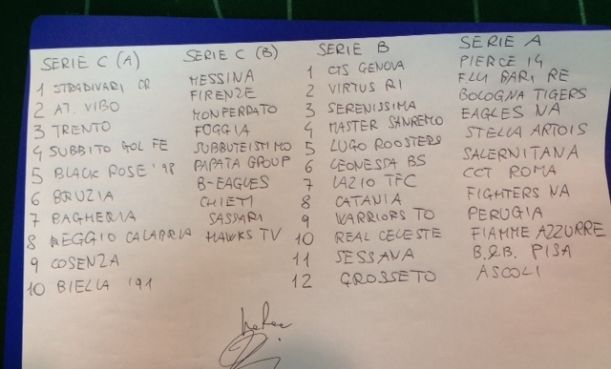 SERIE C (A)
1 STRADIVARI CR
2 AT. VIBO
3 TRENTO
4 SUBBITO GOL FE
5 BLACK ROSE '98
6 BRUZIA
7 BAGHERIA
8 REGGIO CALABRIA
9 COSENZA
10 BIELLA '91
SERIE C (B)
MESSINA
FIRENZE
MONFERRATO
FOGGIA
SUBBUTEISTI MO
PAPATA GROUP
B-EAGLES
CHIETI
SASSARI
HAWKS TV
SERIE B
1 CTS GENOVA
2 VIRTUS RI
3 SERENISSIMA
4 MASTER SANREMO
5 LUGO ROOSTERS
6 LEONESSA BS
7 LAZIO TFC
8 CATANIA
9 WARRIORS TO
10 REAL CELESTE
11 SESSANA
12 GROSSETO
SERIE A
PIERCE 14
FLLI BARI RE
BOLOGNA TIGERS
EAGLES NA
STELLA ARTOIS
SALERNITANA
CCT ROMA
FIGHTERS NA
PERUGIA
FIAMME AZZURRE
B.&B. PISA
ASCOLI